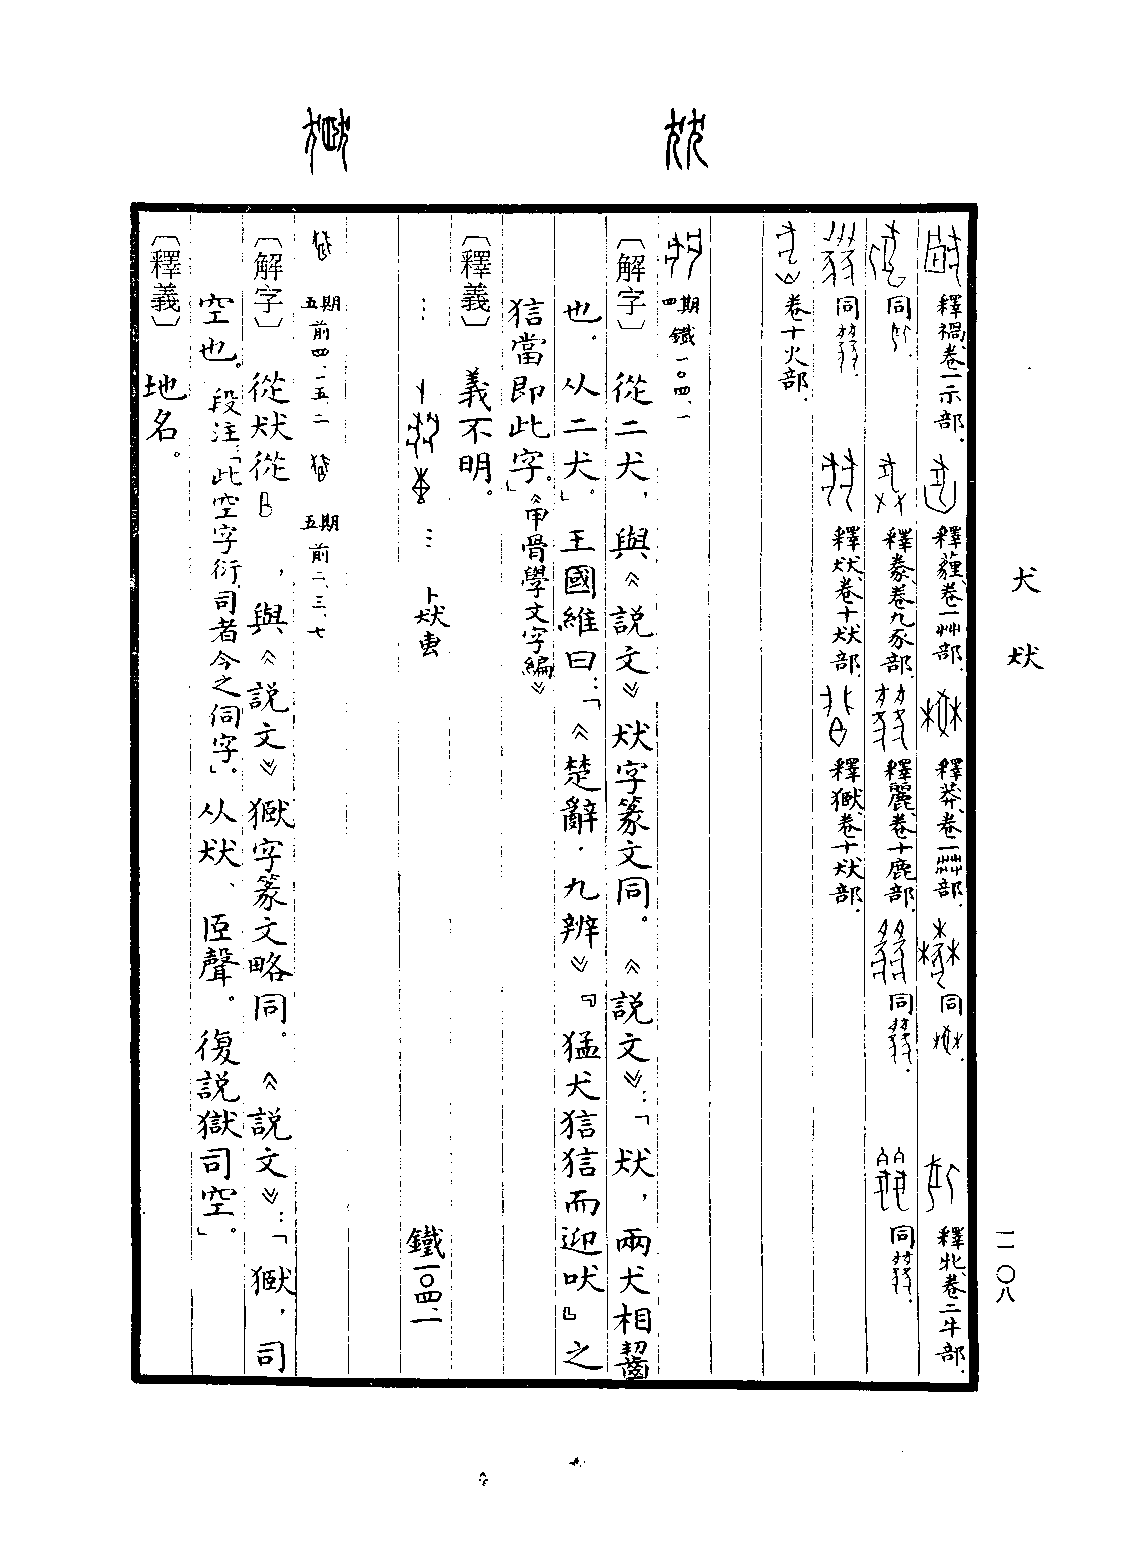 犬 㹜
一一〇八
釋禍、卷一示部. 釋薶、卷一艸部. 釋莽、卷一茻部. 同 釋牝、卷二牛部.
同 釋豢、卷九豕部. 釋麗、卷十鹿部. 同 同
同 釋㹜、卷十㹜部. 釋獄、卷十㹜部.
卷十火部.
四期 鐵一〇四、一
〔解字〕 從二犬，與《說文》㹜字篆文同。《說文》：「㹜，兩犬相齧
也．从二犬」。王國維曰：「《楚辭．九辨》『猛犬狺狺而迎吠』之
狺當即此字。」《甲骨學文字編》
〔釋義〕 義不明。
… … 卜㹜 鐵一〇四、一
五期 前四、一五、二 五期 前二、三、七
〔解字〕 從㹜從 ，與《說文》㺇字篆文略同。《說文》：「㺇，司
空也。段注「此空字衍，司者今之伺字」．从㹜、𦣞聲。復說獄司空。」
〔釋義〕 地名。